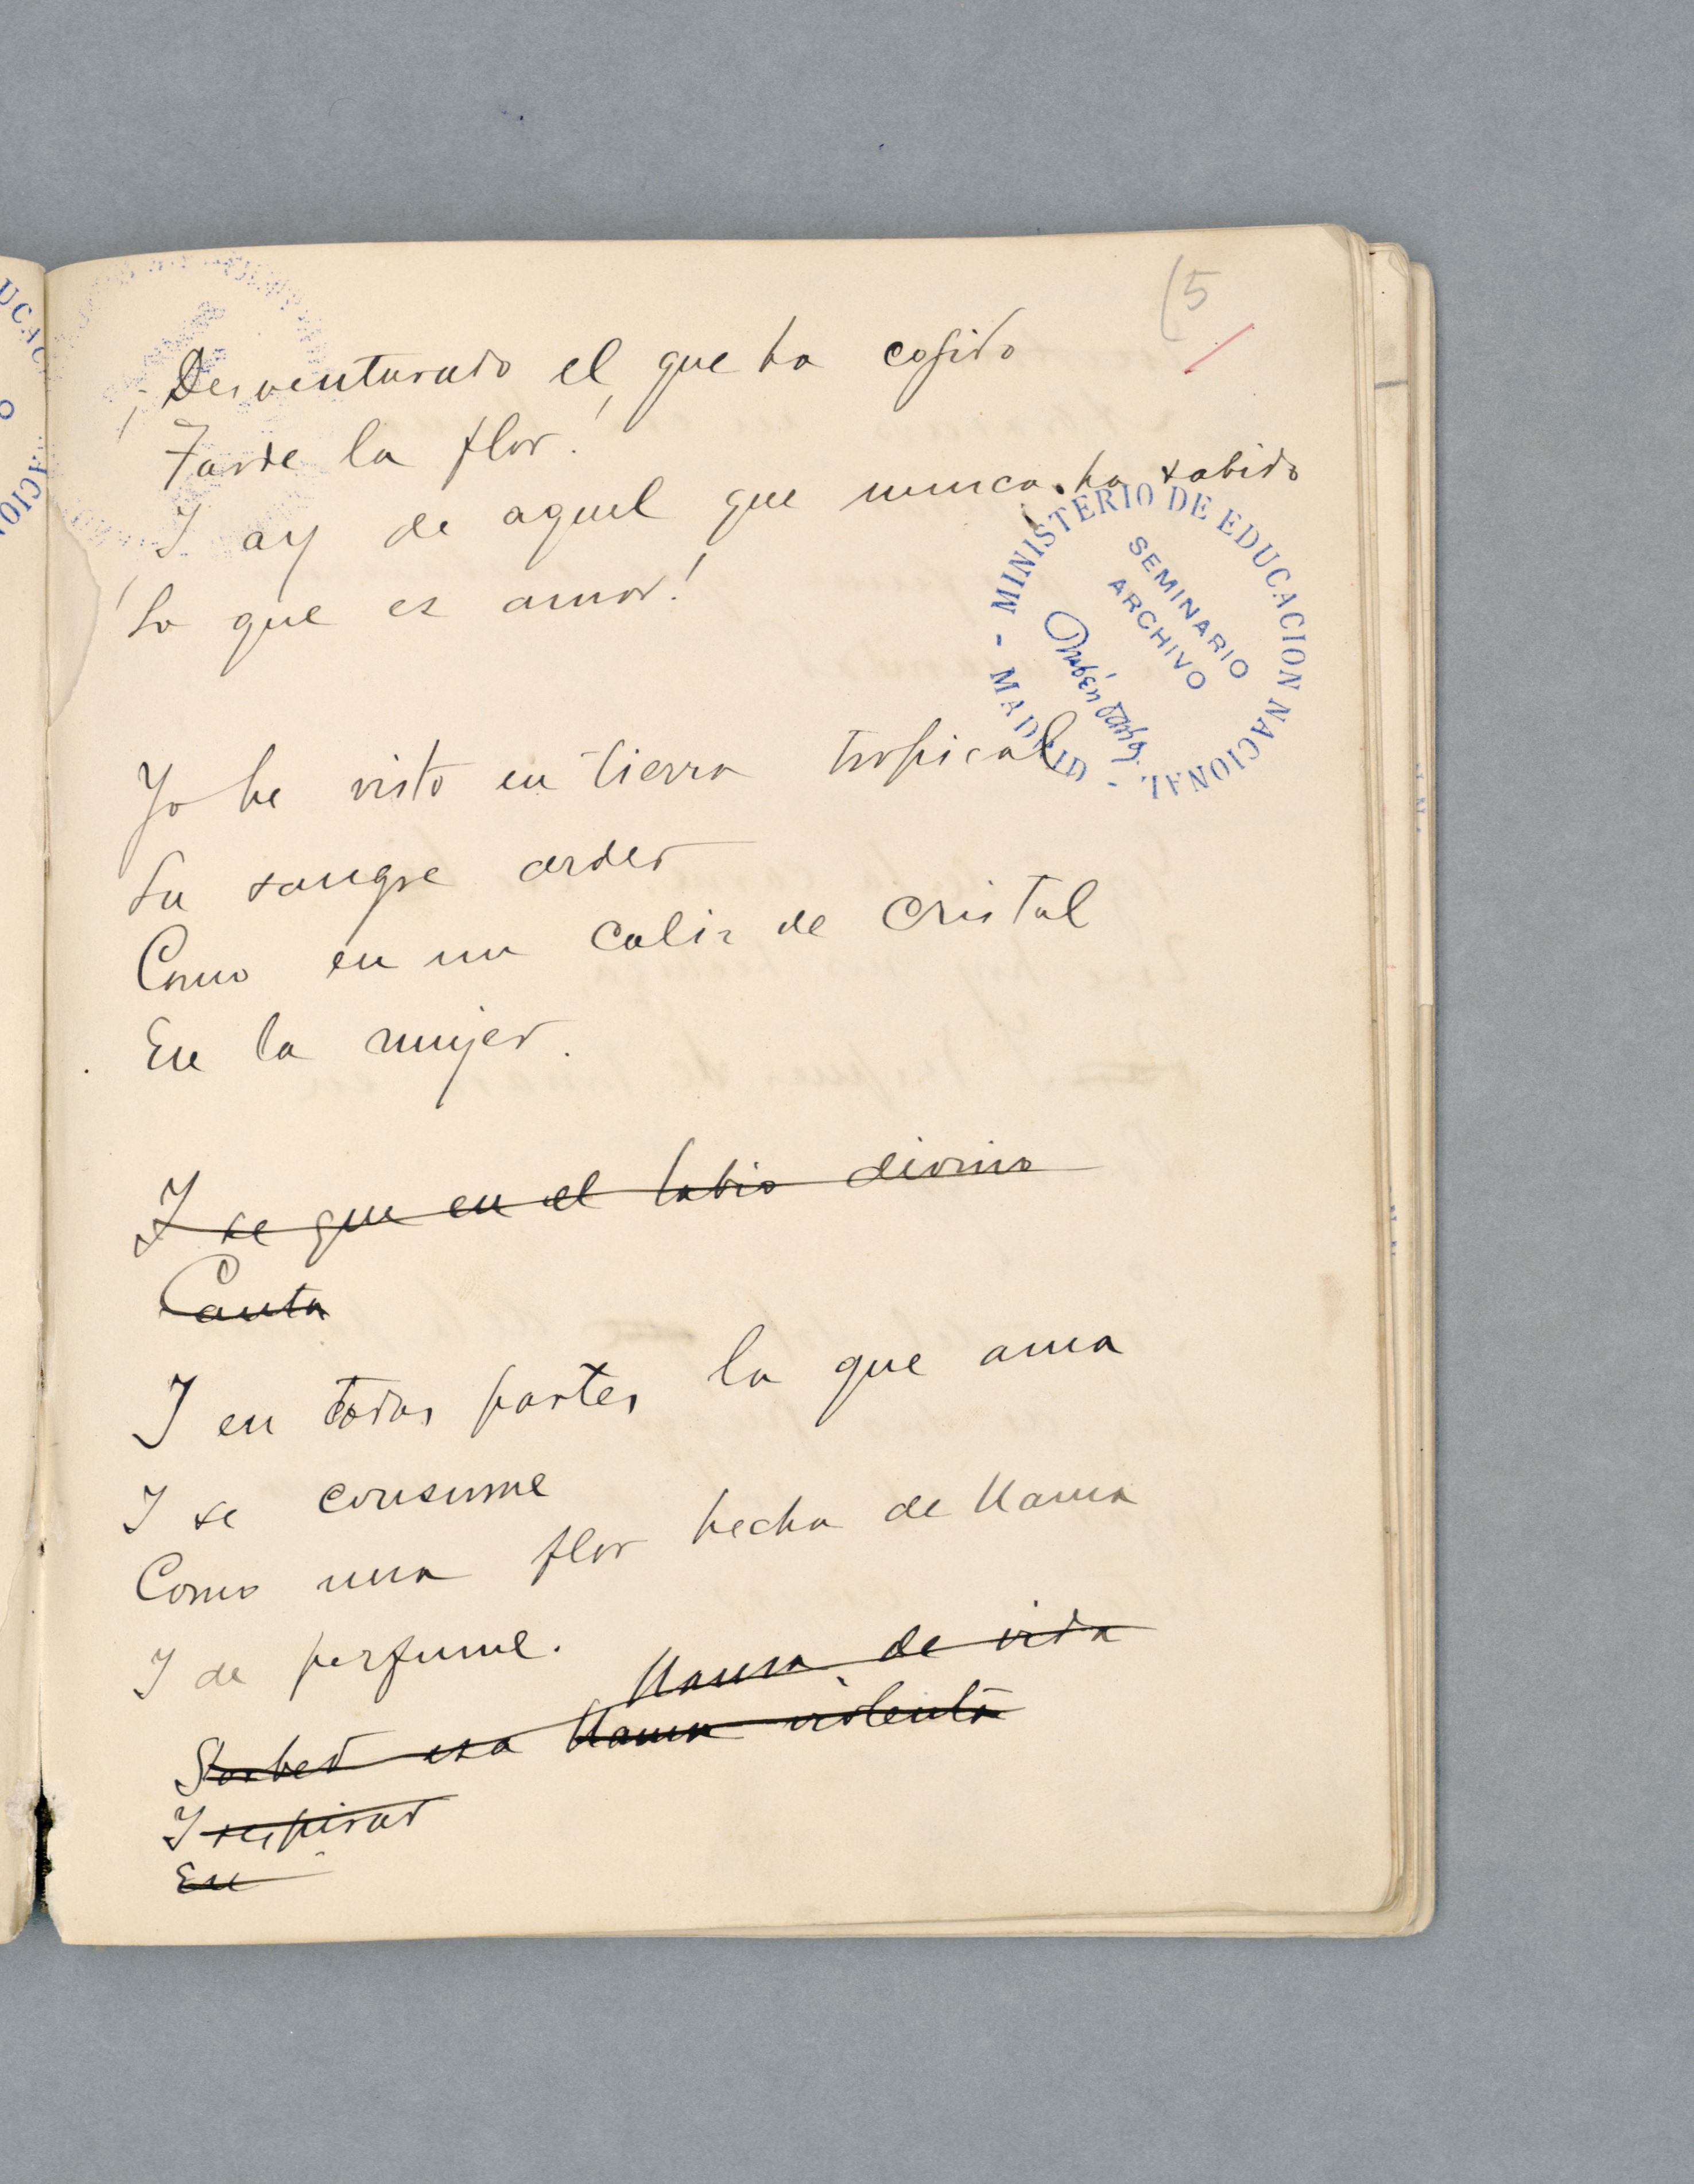 (5
¡Desventurado el que ha cogido
Tarde la flor!
I ay de aquel que nunca ha sabido
Lo que es amor!
Yo he visto en tierra tropical
La sangre arder
Como en un caliz de cristal
En la mujer.
I se que en el labio divino
Canta
I en todas partes la que ama
I se consume
Como una flor hecha de llama
I de perfume.
llama de vida
Sorbed esa llama violenta
I respirad
En
MINISTERIO DE EDUCACION NACIONAL - MADRID -
SEMINARIO
ARCHIVO
Rubén Darío